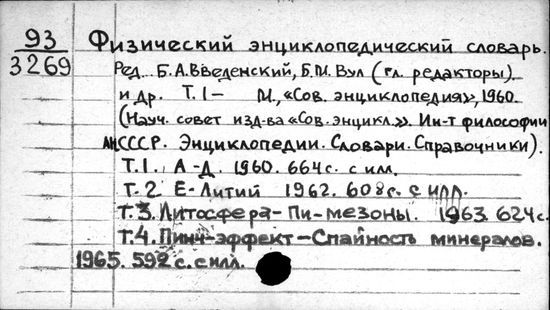 93
3269
Физический энциклопедический словарь.
Ред. Б.А.Введенский, Б.М.Вул (гл. редакторы)
и др. Т.1- М., «Сов. энциклопедия», 1960.
(Науч. совет изд-ва «Сов. энцикл.». Ин-т философии
АН СССР. Энциклопедии. Словари. Справочники).
Т.1. А-Д. 1960. 664с. с илл.
Т.2 Е-Литий 1962. 608с. с илл.
Т.3. Литосфера-Пи-мезоны. 1963. 624с.
Т.4. Пинч-эффект-Спайность минералов.
1965. 592 с. с илл.